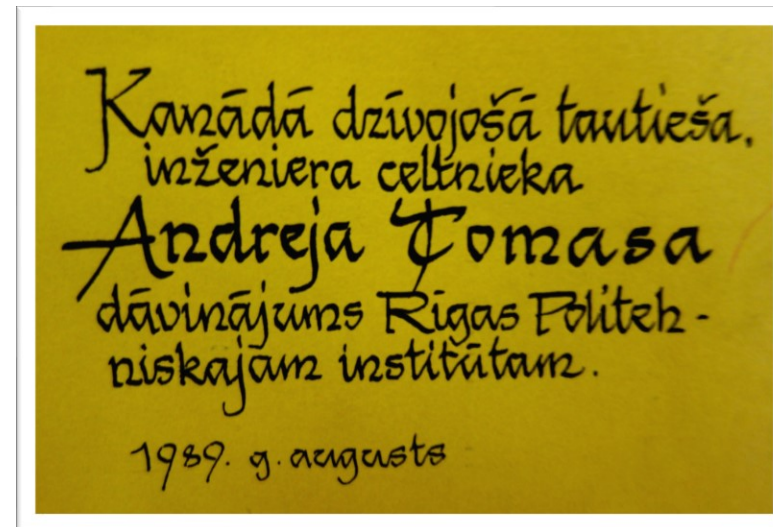 Kanādā dzīvojošā tautieša,
inženiera celtnieka
Andreja Tomasa
dāvinājums Rīgas Politeh-
niskajam institūtam.
1989. g. augusts